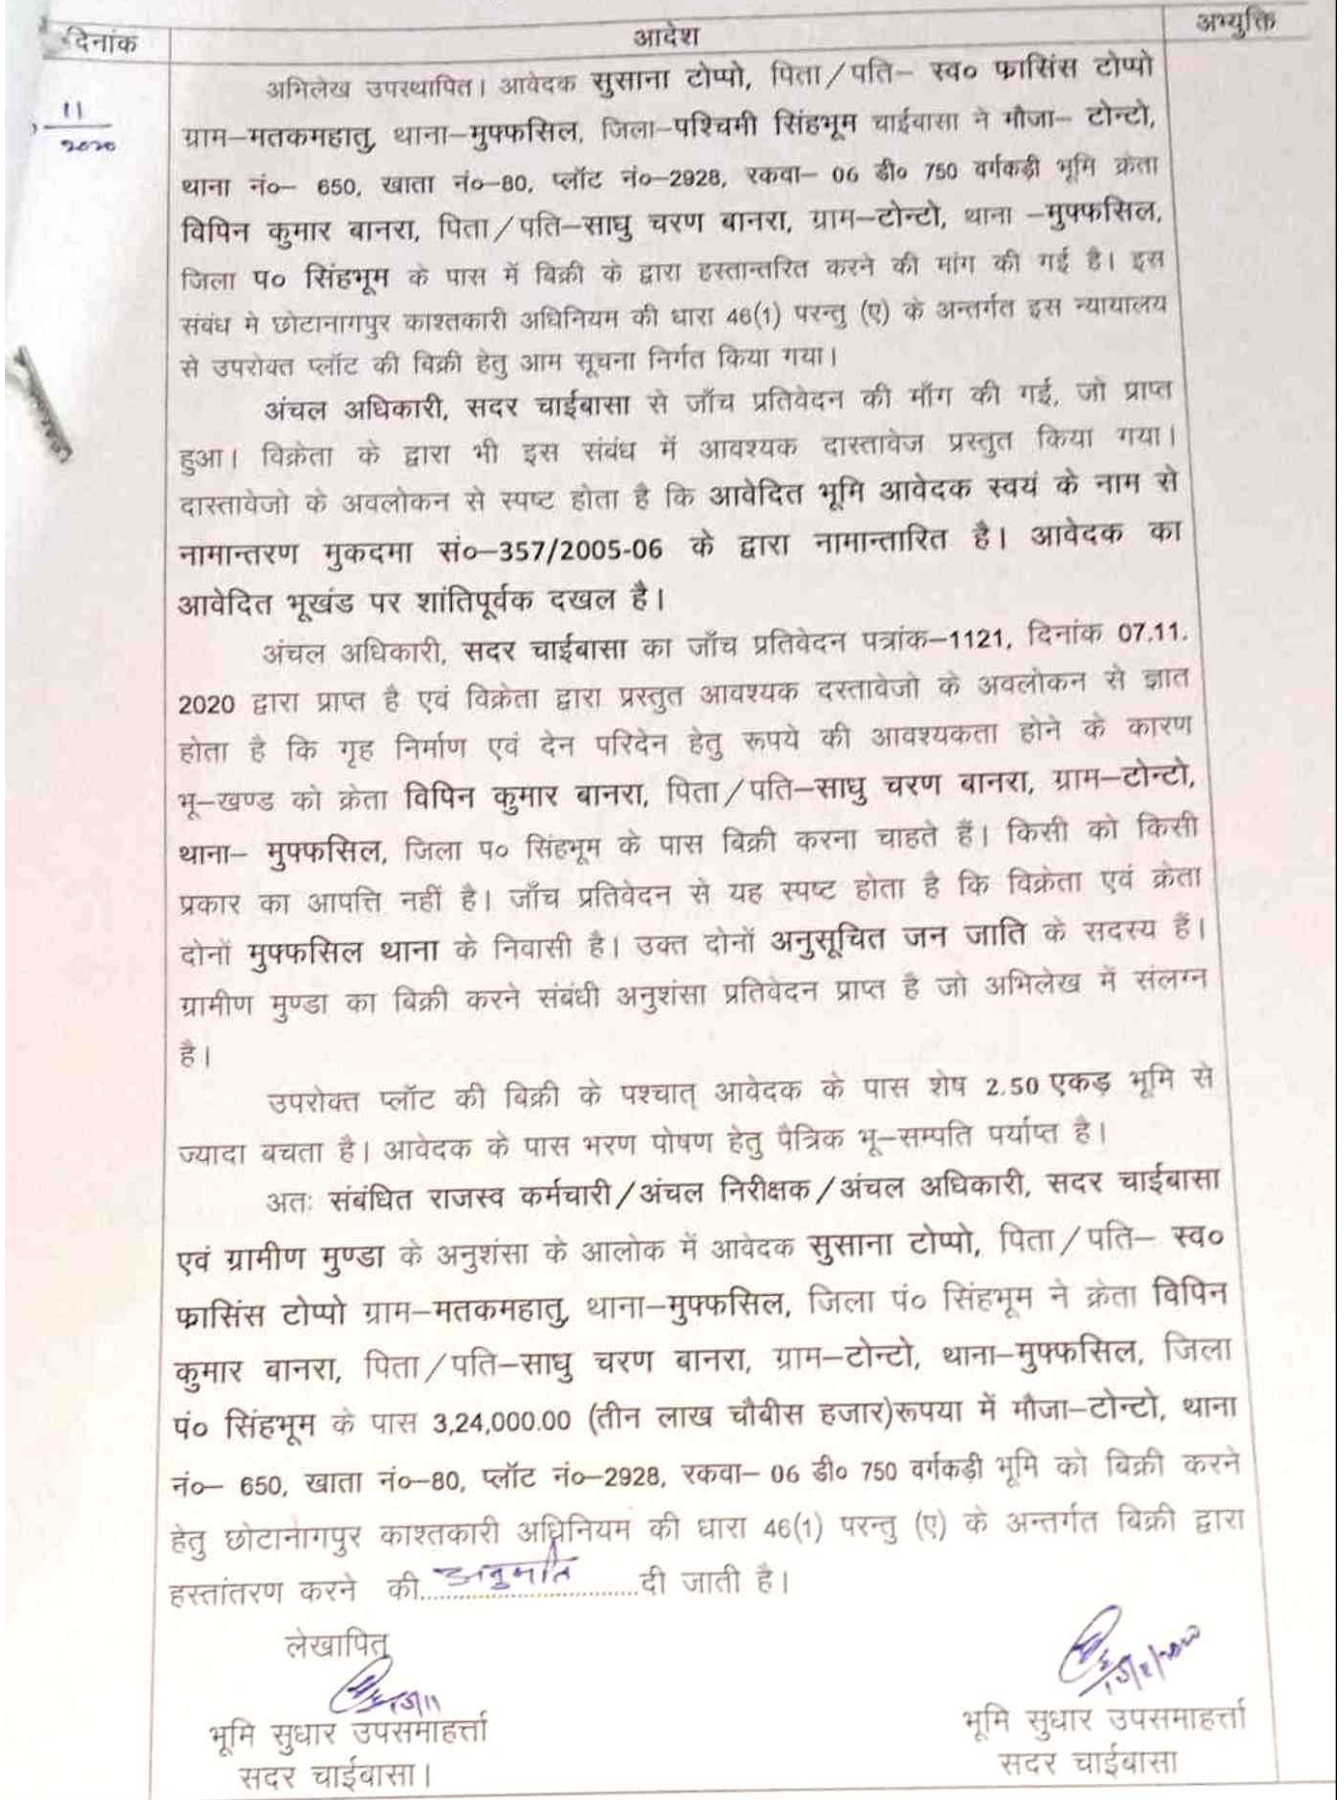 दिनांक आदेश अभ्युक्ति
11
2020
अभिलेख उपस्थापित। आवेदक सुसाना टोप्पो, पिता/पति– स्व० फासिंस टोप्पो
ग्राम–मतकमहातु, थाना–मुफ्फसिल, जिला–पश्चिमी सिंहभूम चाईबासा ने मौजा– टोन्टो,
थाना नं०– 650, खाता नं०–80, प्लॉट नं०–2928, रकवा– 06 डी० 750 वर्गकड़ी भूमि क्रेता
विपिन कुमार बानरा, पिता/पति–साधु चरण बानरा, ग्राम–टोन्टो, थाना –मुफ्फसिल,
जिला प० सिंहभूम के पास में बिक्री के द्वारा हस्तान्तरित करने की मांग की गई है। इस
संबंध मे छोटानागपुर काश्तकारी अधिनियम की धारा 46(1) परन्तु (ए) के अन्तर्गत इस न्यायालय
से उपरोक्त प्लॉट की बिक्री हेतु आम सूचना निर्गत किया गया।
अंचल अधिकारी, सदर चाईबासा से जाँच प्रतिवेदन की माँग की गई, जो प्राप्त
हुआ। विक्रेता के द्वारा भी इस संबंध में आवश्यक दास्तावेज प्रस्तुत किया गया।
दास्तावेजो के अवलोकन से स्पष्ट होता है कि आवेदित भूमि आवेदक स्वयं के नाम से
नामान्तरण मुकदमा सं०–357/2005-06 के द्वारा नामान्तारित है। आवेदक का
आवेदित भूखंड पर शांतिपूर्वक दखल है।
अंचल अधिकारी, सदर चाईबासा का जाँच प्रतिवेदन पत्रांक–1121, दिनांक 07.11.
2020 द्वारा प्राप्त है एवं विक्रेता द्वारा प्रस्तुत आवश्यक दस्तावेजो के अवलोकन से ज्ञात
होता है कि गृह निर्माण एवं देन परिदेन हेतु रूपये की आवश्यकता होने के कारण
भू–खण्ड को क्रेता विपिन कुमार बानरा, पिता/पति–साधु चरण बानरा, ग्राम–टोन्टो,
थाना– मुफ्फसिल, जिला प० सिंहभूम के पास बिक्री करना चाहते हैं। किसी को किसी
प्रकार का आपत्ति नहीं है। जाँच प्रतिवेदन से यह स्पष्ट होता है कि विक्रेता एवं क्रेता
दोनों मुफ्फसिल थाना के निवासी है। उक्त दोनों अनुसूचित जन जाति के सदस्य हैं।
ग्रामीण मुण्डा का बिक्री करने संबंधी अनुशंसा प्रतिवेदन प्राप्त है जो अभिलेख में संलग्न
है।
उपरोक्त प्लॉट की बिक्री के पश्चात् आवेदक के पास शेष 2.50 एकड़ भूमि से
ज्यादा बचता है। आवेदक के पास भरण पोषण हेतु पैत्रिक भू–सम्पति पर्याप्त है।
अतः संबंधित राजस्व कर्मचारी/अंचल निरीक्षक/अंचल अधिकारी, सदर चाईबासा
एवं ग्रामीण मुण्डा के अनुशंसा के आलोक में आवेदक सुसाना टोप्पो, पिता/पति– स्व०
फासिंस टोप्पो ग्राम–मतकमहातु, थाना–मुफ्फसिल, जिला पं० सिंहभूम ने क्रेता विपिन
कुमार बानरा, पिता/पति–साधु चरण बानरा, ग्राम–टोन्टो, थाना–मुफ्फसिल, जिला
पं० सिंहभूम के पास 3,24,000.00 (तीन लाख चौबीस हजार)रूपया में मौजा–टोन्टो, थाना
नं०– 650, खाता नं०–80, प्लॉट नं०–2928, रकवा– 06 डी० 750 वर्गकड़ी भूमि को बिक्री करने
हेतु छोटानागपुर काश्तकारी अधिनियम की धारा 46(1) परन्तु (ए) के अन्तर्गत बिक्री द्वारा
हस्तांतरण करने की....अनुमति....दी जाती है।
लेखापित्
13/11 13/11/2020
भूमि सुधार उपसमाहर्त्ता भूमि सुधार उपसमाहर्त्ता
सदर चाईबासा। सदर चाईबासा